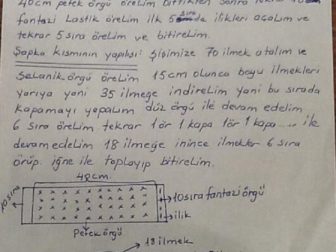 40cm petek örgü bittikten sonra tekrar
fantazi Lastik örelim ilk 5 sırada ilikleri açalım ve
tekrar 5 sıra örelim ve bitirelim.
Şapka kısmının yapılışı: Şişimize 70 ilmek atalım ve
Selanik örgü örelim 15cm olunca boyu ilmekleri
yarıya yani 35 ilmeğe indirelim yani bu sırada
kapamayı yapalım düz örgü ile devam edelim
6 sıra örelim tekrar 1ör 1kapa 1ör 1kapa.... ile
devam edelim 18 ilmeğe inince ilmekler 6 sıra
örüp iğne ile toplayıp bitirelim.
48cm.
10 sıra
10sıra fantazi örgü
ilik
Petek örgü
18 ilmek